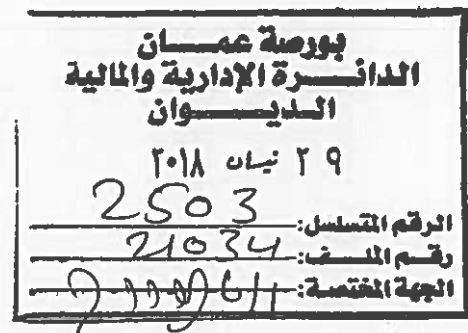 بورصة عمـــان
الدائـــرة الإدارية والمالية
الـديـــــوان
٢٩ نيسان ٢٠١٨
الرقم المتسلسل: 2503
رقـم الملـــف: 21034
الجهة المختصـة: